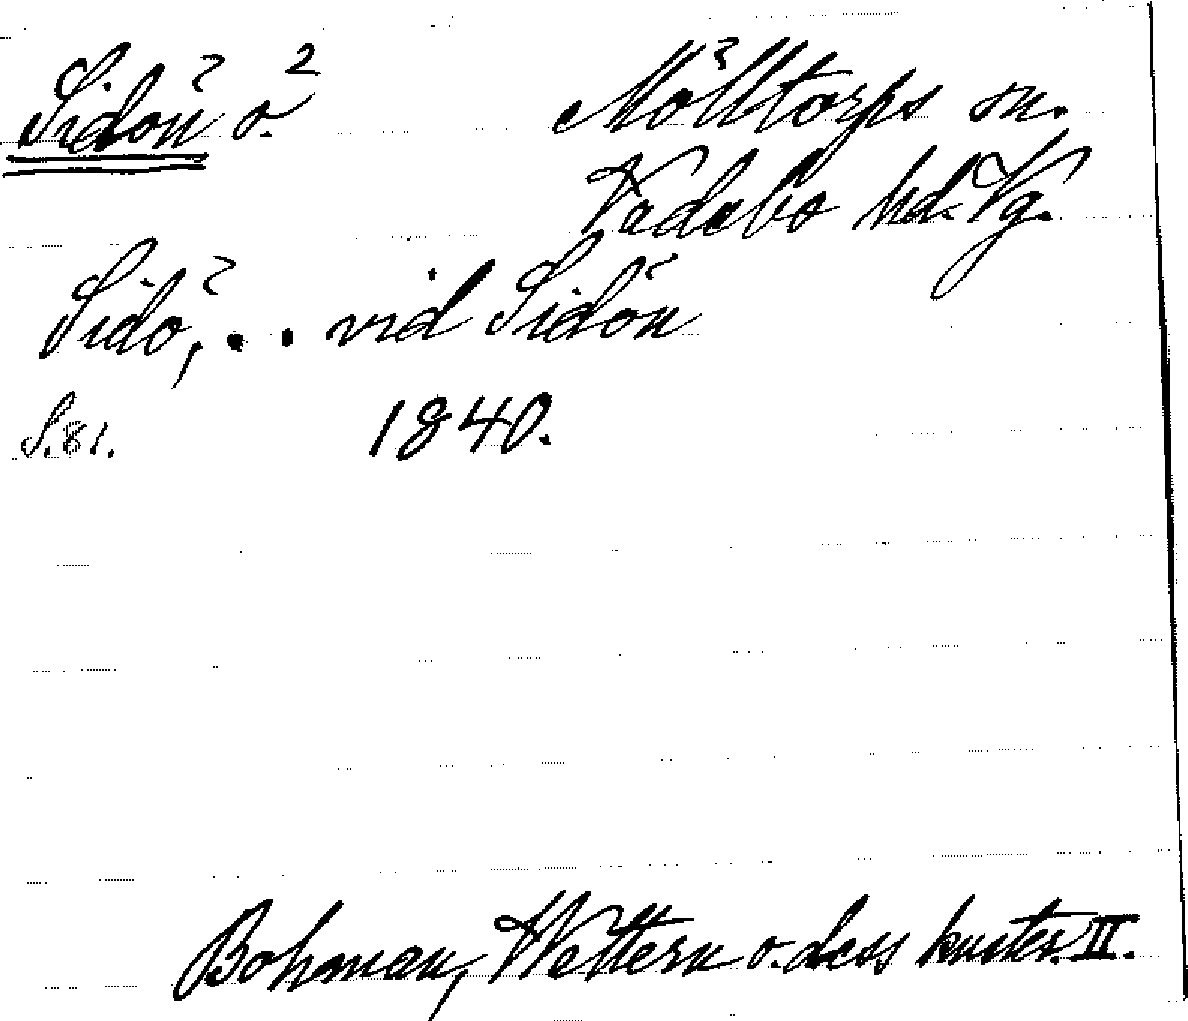 Sidön ö.² Mölltorps sn.
Vadsbo hd. Vg.
Sidö, . . vid Sidön
S. 81. 1840.
Bohman, Wettern o. dess kuster. II.